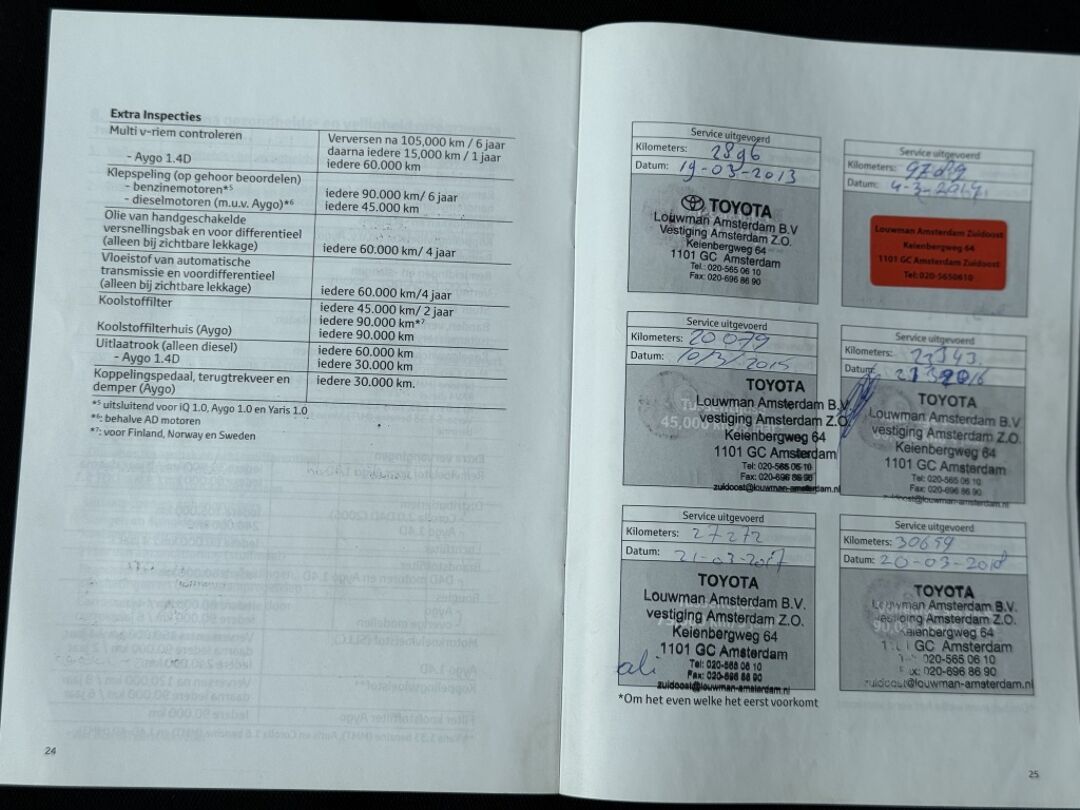 Extra Inspecties
Multi v-riem controleren
- Aygo 1.4D
Verversen na 105,000 km / 6 jaar
daarna iedere 15,000 km / 1 jaar
iedere 60.000 km
Klepspeling (op gehoor beoordelen)
- benzinemotoren*5
- dieselmotoren (m.u.v. Aygo)*6
iedere 90.000 km/ 6 jaar
iedere 45.000 km
Olie van handgeschakelde
versnellingsbak en voor differentieel
(alleen bij zichtbare lekkage)
iedere 60.000 km/ 4 jaar
Vloeistof van automatische
transmissie en voordifferentieel
(alleen bij zichtbare lekkage)
iedere 60.000 km/4 jaar
Koolstoffilter
iedere 45.000 km/ 2 jaar
iedere 90.000 km*7
Koolstoffilterhuis (Aygo)
iedere 90.000 km
Uitlaatrook (alleen diesel)
- Aygo 1.4D
iedere 60.000 km
iedere 30.000 km
Koppelingspedaal, terugtrekveer en
demper (Aygo)
iedere 30.000 km.
*5 uitsluitend voor iQ 1.0, Aygo 1.0 en Yaris 1.0
*6: behalve AD motoren
*7: voor Finland, Norway en Sweden
24
Service uitgevoerd
Kilometers: 2896
Datum: 19-03-2013
TOYOTA
Louwman Amsterdam B.V
Vestiging Amsterdam Z.O.
Keienbergweg 64
1101 GC Amsterdam
Tel.: 020-565 06 10
Fax: 020-696 86 90
Service uitgevoerd
Kilometers:
Datum: 4-3-2014
Louwman Amsterdam Zuidoost
Keienbergweg 64
1101 GC Amsterdam Zuidoost
Tel:020-5650610
Service uitgevoerd
Kilometers: 20079
Datum: 10/3/2015
45,000 km
TOYOTA
Louwman Amsterdam B.V.
vestiging Amsterdam Z.O.
Keienbergweg 64
1101 GC Amsterdam
Tel: 020-565 06 10
Fax: 020-696 86 90
zuidoost@louwman-amsterdam.nl
Service uitgevoerd
Kilometers:
Datum:
TOYOTA
Louwman Amsterdam B.V
vestiging Amsterdam Z.O.
Keienbergweg 64
1101 GC Amsterdam
Tel: 020-565 06 10
Fax: 020-696 86 90
zuidoost@louwman-amsterdam.nl
Service uitgevoerd
Kilometers: 27272
Datum: 21-03-2017
TOYOTA
Louwman Amsterdam B.V.
vestiging Amsterdam Z.O.
Keienbergweg 64
1101 GC Amsterdam
Tel: 020-565 06 10
Fax: 020-696 86 90
zuidoost@louwman-amsterdam.nl
ali
Service uitgevoerd
Kilometers: 30659
Datum: 20-03-2018
TOYOTA
Louwman Amsterdam B.V.
vestiging Amsterdam Z.O.
Keienbergweg 64
GC Amsterdam
020-565 06 10
020-696 86 90
zuidoost@louwman-amsterdam.nl
*Om het even welke het eerst voorkomt
25